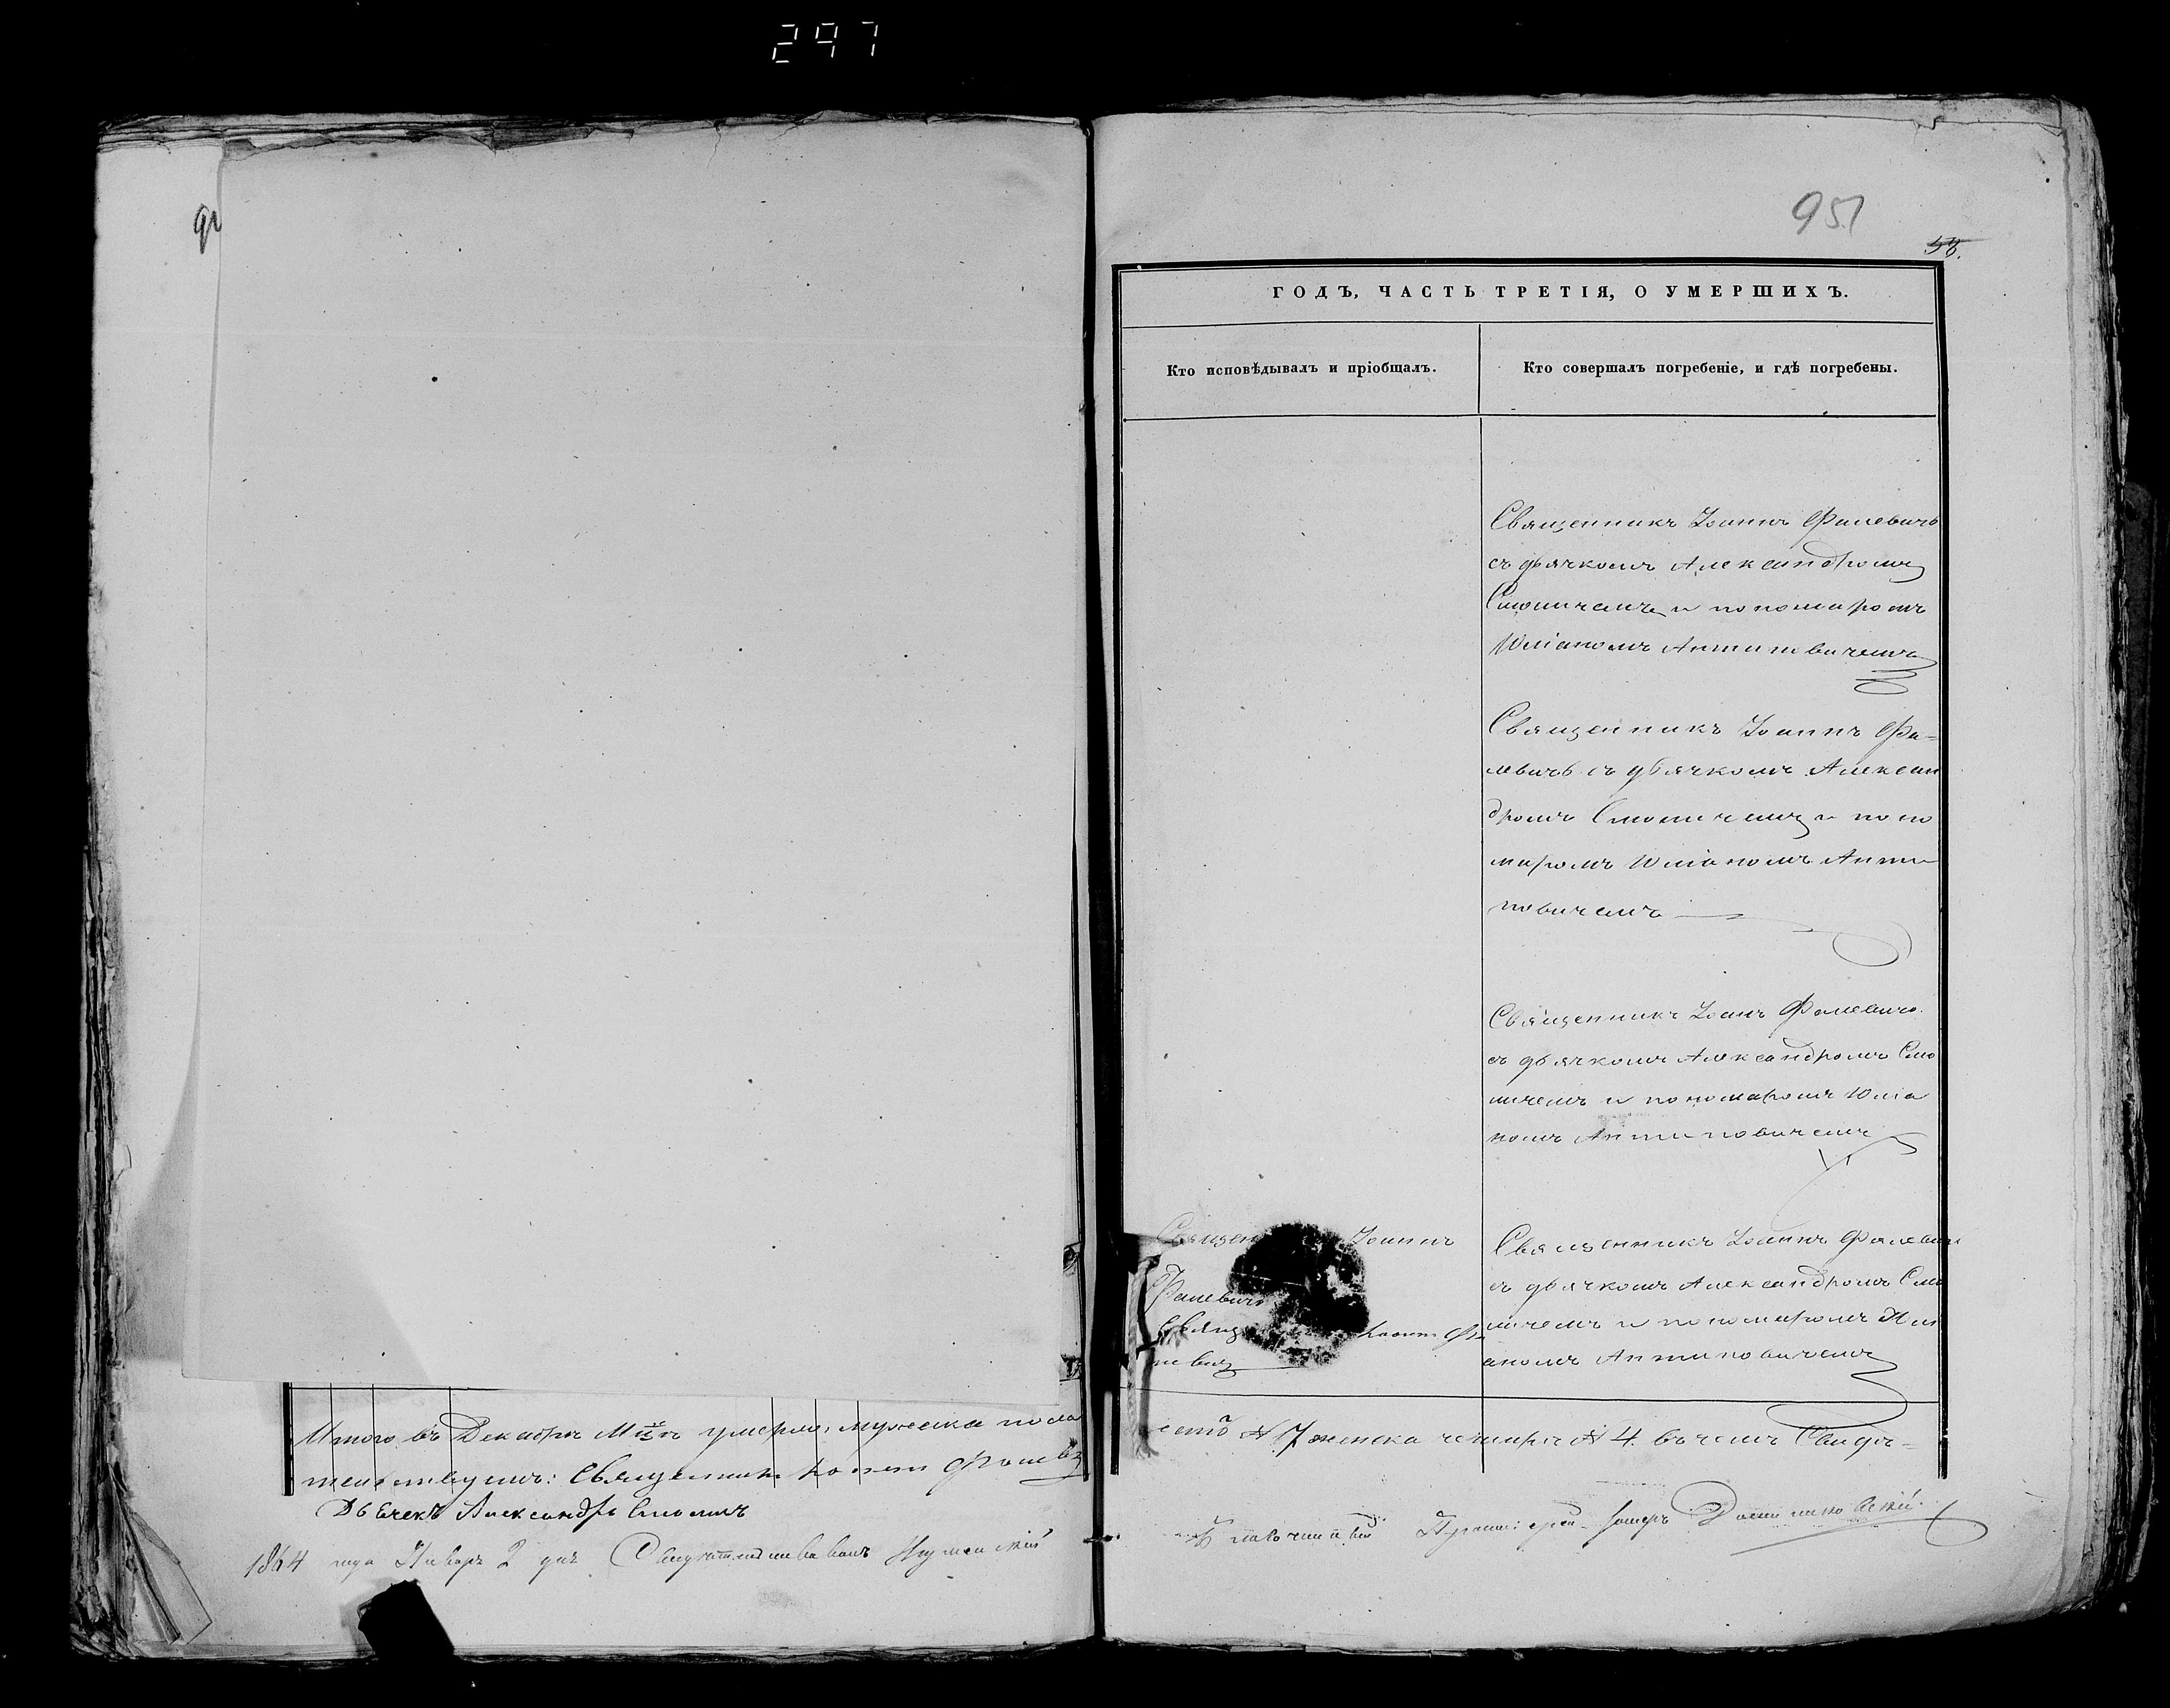 297
951
58.
ГОДЪ, ЧАСТЬ ТРЕТІЯ, О УМЕРШИХЪ.
Кто исповѣдывалъ и пріобщалъ.
Кто совершалъ погребеніе, и гдѣ погребены.
Священникъ Іоаннъ Фалевичъ
съ дьячкомъ Александромъ
Смоличемъ и пономаромъ
Юліаномъ Антиповичемъ
Священникъ Іоаннъ Фа=
левичъ съ дьячкомъ Алексан
дромъ Смоличемъ и поно
маромъ Юліаномъ Анти
повичемъ
Священникъ Іоанъ Фалевичъ
съ дьячкомъ Александромъ Смо
личемъ и пономаромъ Юліа
номъ Антиповичемъ
Священ Іоаннъ
Фалевичъ
Свящ Іоаннъ Фа
левичъ
Священникъ Іоаннъ Фалевичъ
съ дьячкомъ Александромъ Смо
личемъ и пономаромъ Юлі
аномъ Антиповичемъ
Итого въ Декабрѣ М-цѣ умерло, мужеска пола
женска четыри № 4. въ чемъ Свидѣ=
тельствуемъ: Священникъ Іоаннъ Фалевичъ
Дьечекъ Александръ Смоличъ
1864 года Января 2 дня Свидѣтельствовалъ
Благочинный